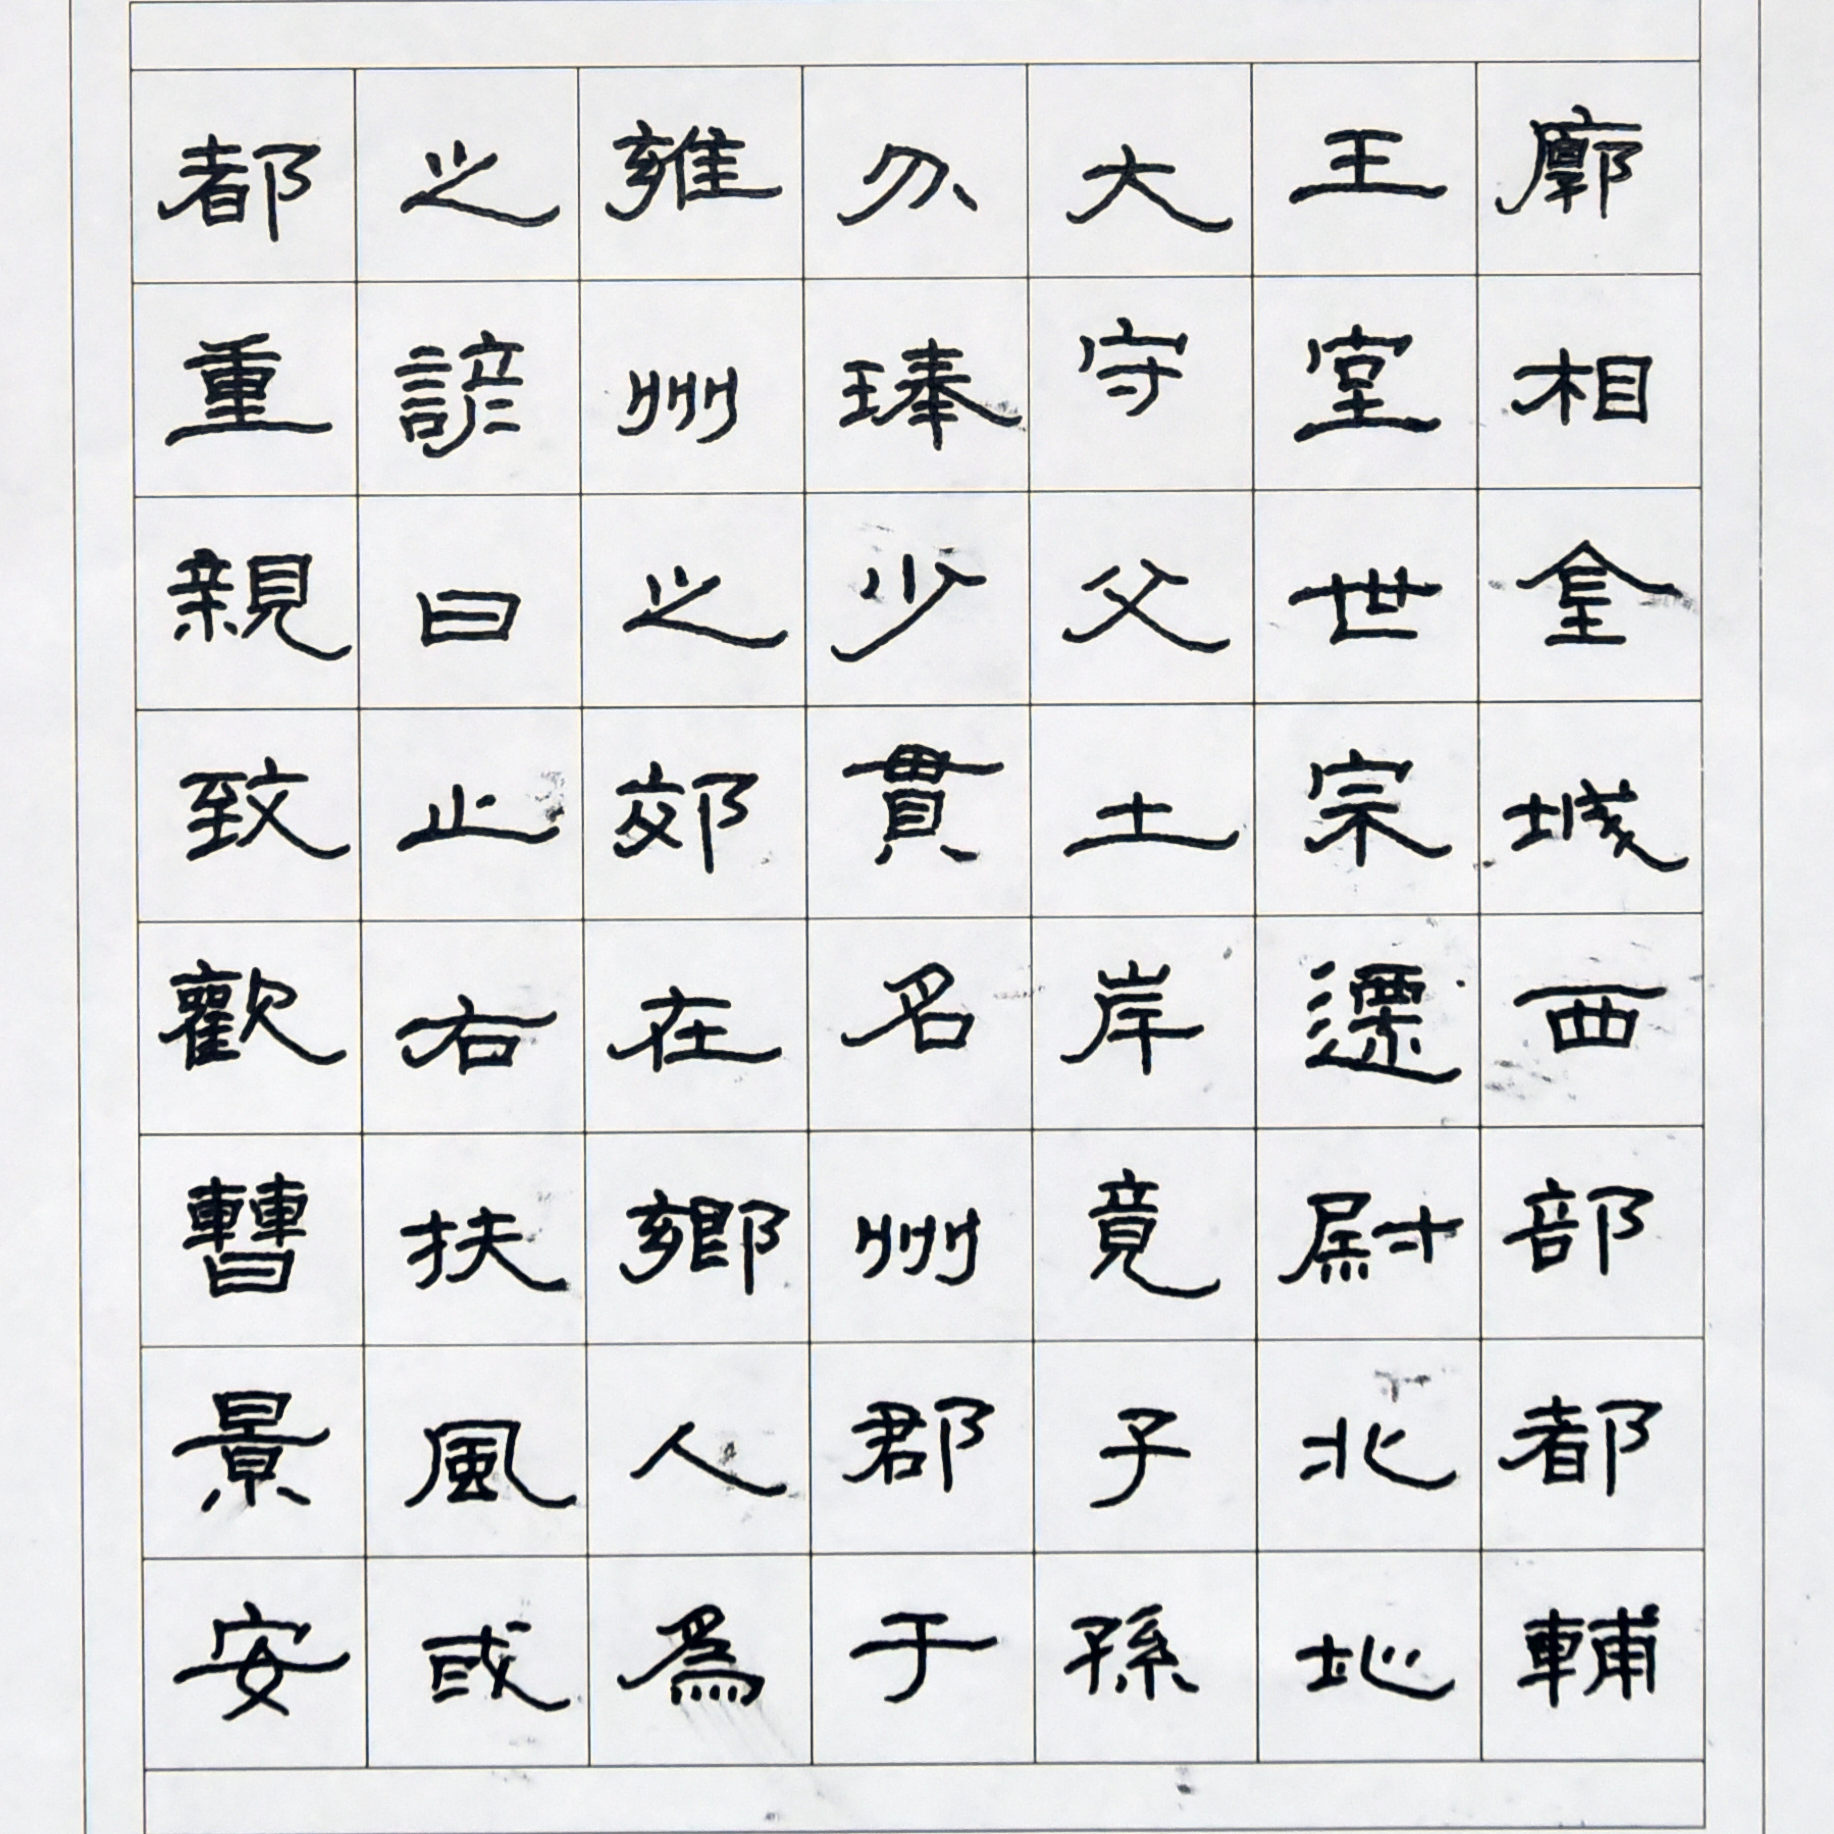 廓相金城西部都輔
王室世宗遷尉北地
大守父土岸竟子孫
分琫少貫名州郡于
雍州之郊在鄉人為
之諺曰止右扶風或
都重親致歡曹景安